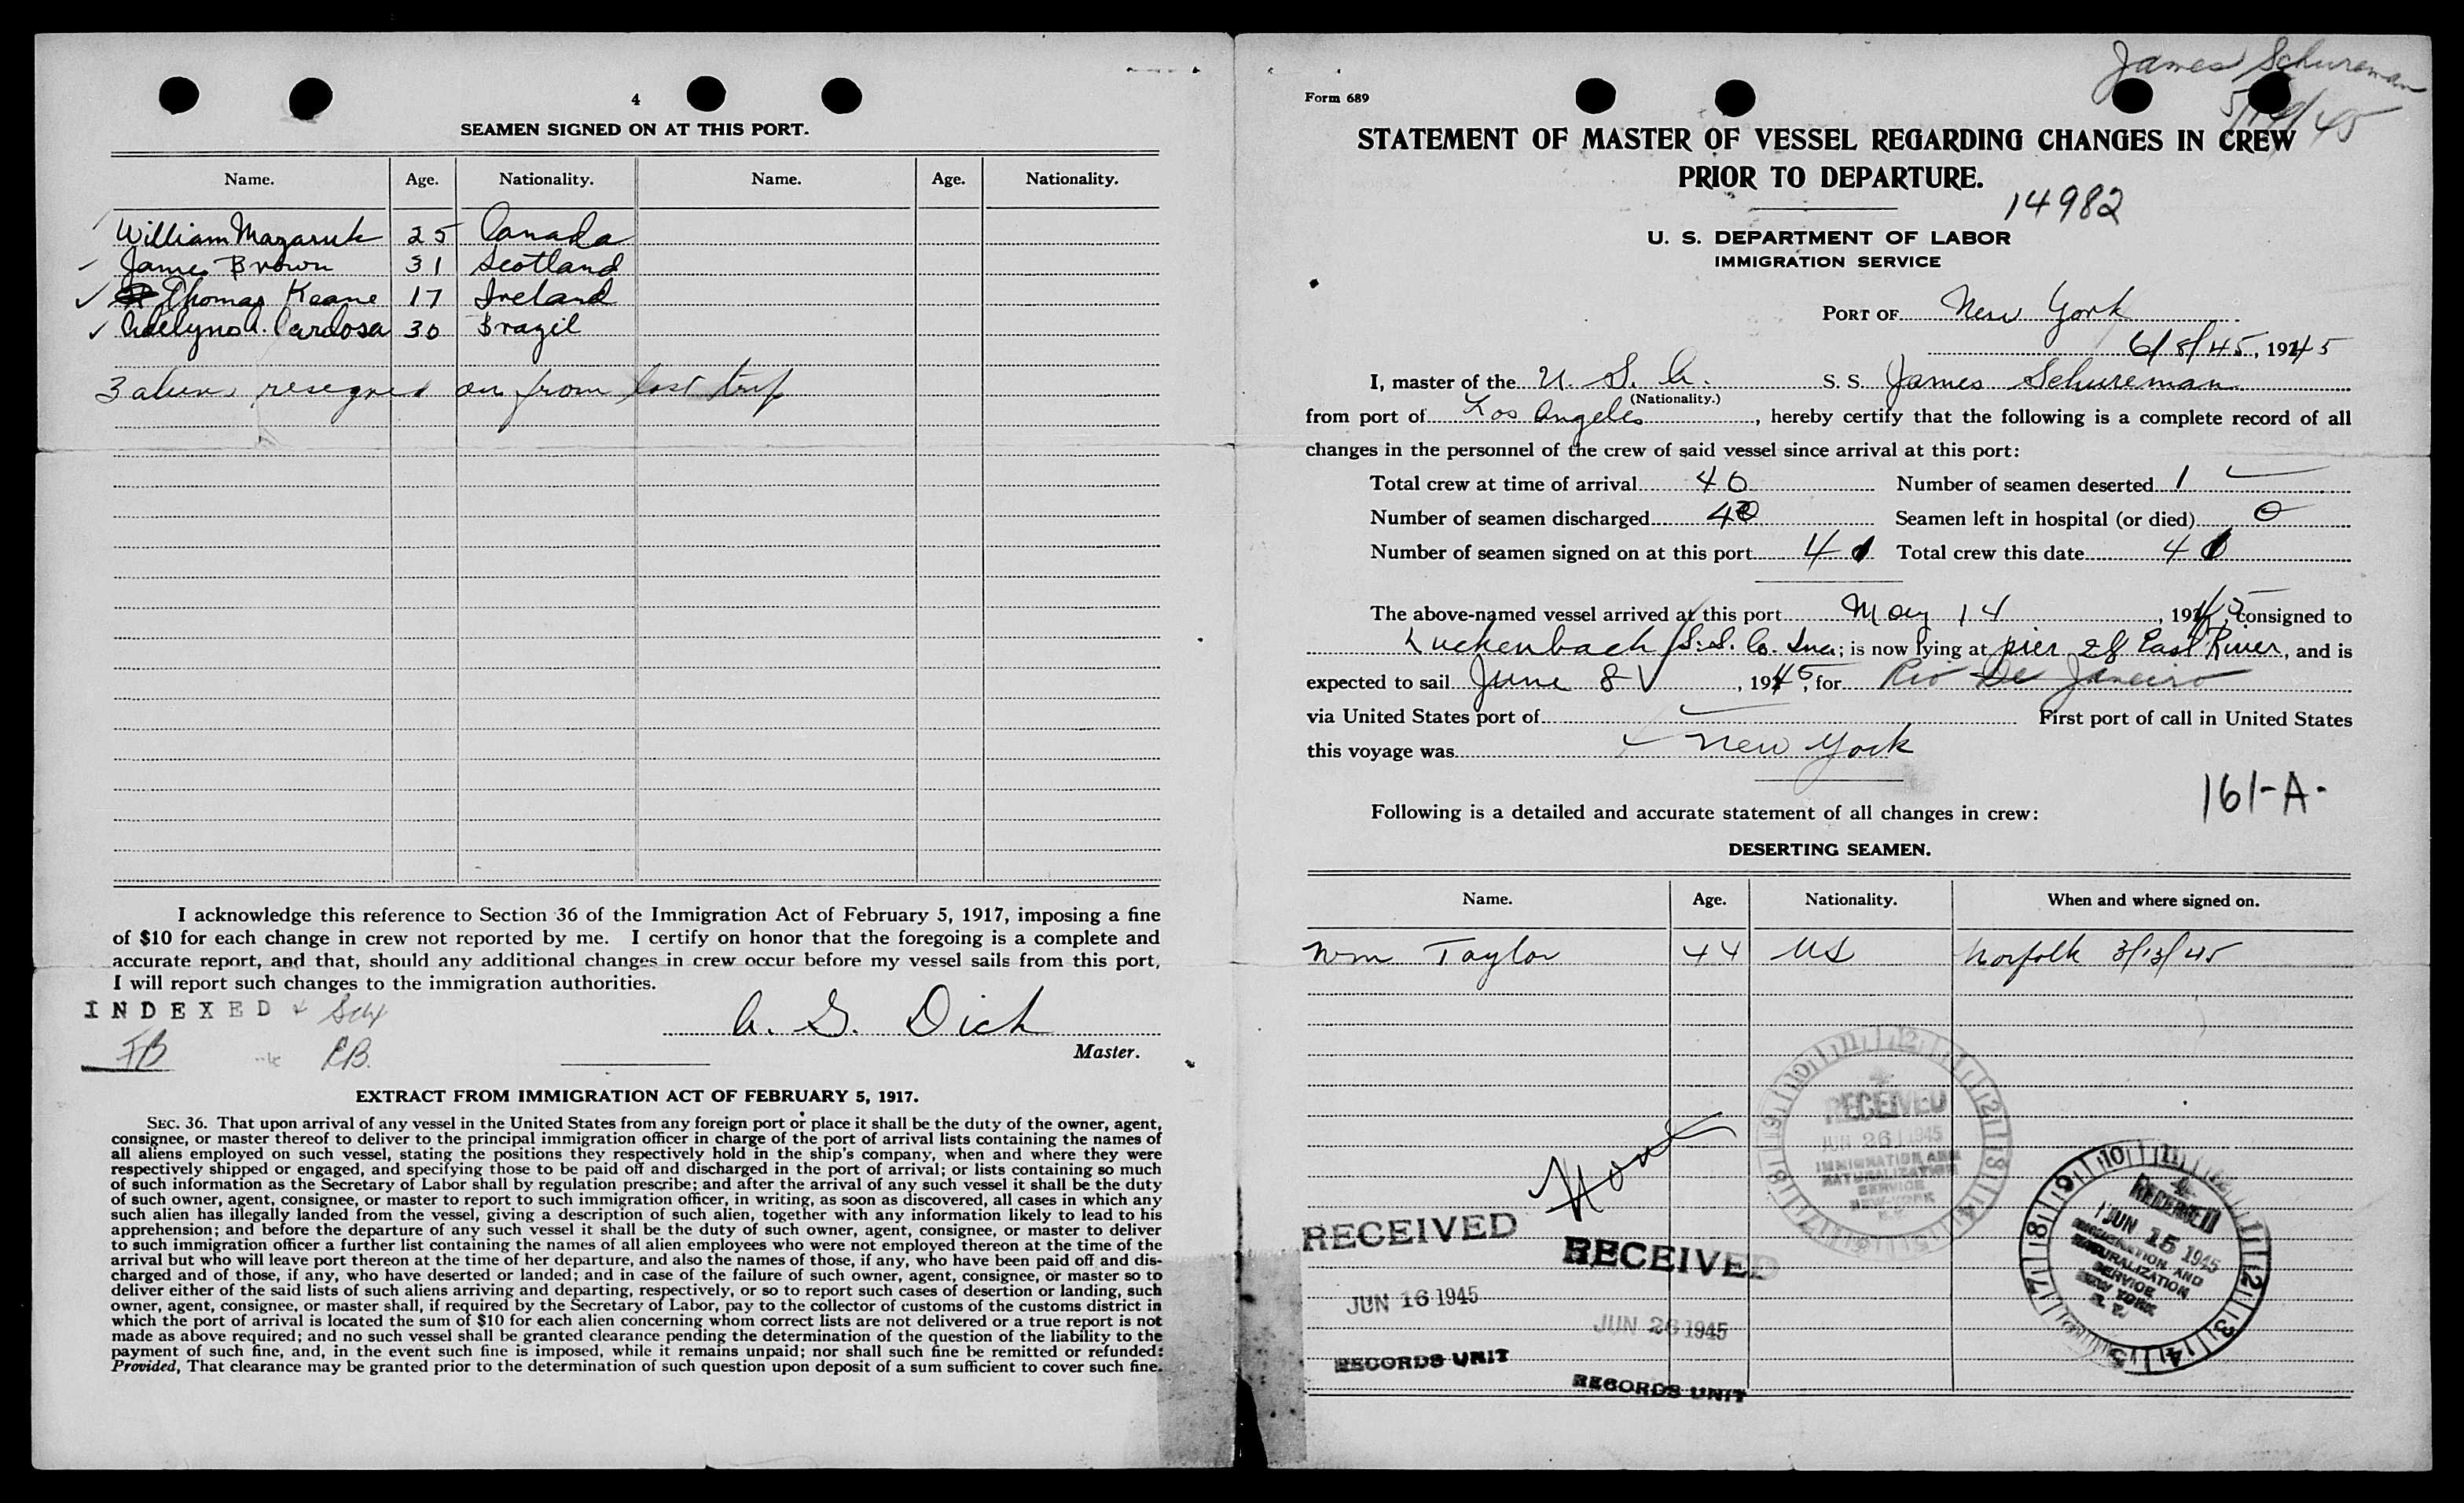 4
SEAMEN SIGNED ON AT THIS PORT.
Name. Age. Nationality. Name. Age. Nationality.
William Mazaruk 25 Canada
James Brown 31 Scotland
Thomas Keane 17 Ireland
Adelyno A. Cardosa 30 Brazil
3 aliens resigned on from last trip
I acknowledge this reference to Section 36 of the Immigration Act of February 5, 1917, imposing a fine
of $10 for each change in crew not reported by me. I certify on honor that the foregoing is a complete and
accurate report, and that, should any additional changes in crew occur before my vessel sails from this port,
I will report such changes to the immigration authorities.
INDEXED
A. G. Dick
FB RB.
Master.
EXTRACT FROM IMMIGRATION ACT OF FEBRUARY 5, 1917.
SEC. 36. That upon arrival of any vessel in the United States from any foreign port or place it shall be the duty of the owner, agent,
consignee, or master thereof to deliver to the principal immigration officer in charge of the port of arrival lists containing the names of
all aliens employed on such vessel, stating the positions they respectively hold in the ship's company, when and where they were
respectively shipped or engaged, and specifying those to be paid off and discharged in the port of arrival; or lists containing so much
of such information as the Secretary of Labor shall by regulation prescribe; and after the arrival of any such vessel it shall be the duty
of such owner, agent, consignee, or master to report to such immigration officer, in writing, as soon as discovered, all cases in which any
such alien has illegally landed from the vessel, giving a description of such alien, together with any information likely to lead to his
apprehension; and before the departure of any such vessel it shall be the duty of such owner, agent, consignee, or master to deliver
to such immigration officer a further list containing the names of all alien employees who were not employed thereon at the time of the
arrival but who will leave port thereon at the time of her departure, and also the names of those, if any, who have been paid off and dis-
charged and of those, if any, who have deserted or landed; and in case of the failure of such owner, agent, consignee, or master so to
deliver either of the said lists of such aliens arriving and departing, respectively, or so to report such cases of desertion or landing, such
owner, agent, consignee, or master shall, if required by the Secretary of Labor, pay to the collector of customs of the customs district in
which the port of arrival is located the sum of $10 for each alien concerning whom correct lists are not delivered or a true report is not
made as above required; and no such vessel shall be granted clearance pending the determination of the question of the liability to the
payment of such fine, and, in the event such fine is imposed, while it remains unpaid; nor shall such fine be remitted or refunded:
Provided, That clearance may be granted prior to the determination of such question upon deposit of a sum sufficient to cover such fine.
James Schureman
Form 689
STATEMENT OF MASTER OF VESSEL REGARDING CHANGES IN CREW
PRIOR TO DEPARTURE.
14982
U. S. DEPARTMENT OF LABOR
IMMIGRATION SERVICE
PORT OF New York
6/8/45, 1945
I, master of the U. S. A. S. S. James Schureman
(Nationality.)
from port of Los Angeles, hereby certify that the following is a complete record of all
changes in the personnel of the crew of said vessel since arrival at this port:
Total crew at time of arrival 40 Number of seamen deserted 1
Number of seamen discharged 40 Seamen left in hospital (or died) 0
Number of seamen signed on at this port 41 Total crew this date 40
The above-named vessel arrived at this port May 14, 1945, consigned to
Luckenbach S.S. Co. Inc.; is now lying at pier 28 East River, and is
expected to sail June 8, 1945, for Rio De Janeiro
via United States port of First port of call in United States
this voyage was New York
161-A-
Following is a detailed and accurate statement of all changes in crew:
DESERTING SEAMEN.
Name. Age. Nationality. When and where signed on.
Wm Taylor 44 US Norfolk 3/13/45
RECEIVED
JUN 26 1945
IMMIGRATION AND
NATURALIZATION
SERVICE
NEW YORK
N. Y.
RECEIVED
JUN 15 1945
IMMIGRATION AND
NATURALIZATION
SERVICE
NEW YORK
N. Y.
RECEIVED
JUN 16 1945
RECORDS UNIT
RECEIVED
JUN 26 1945
RECORDS UNIT